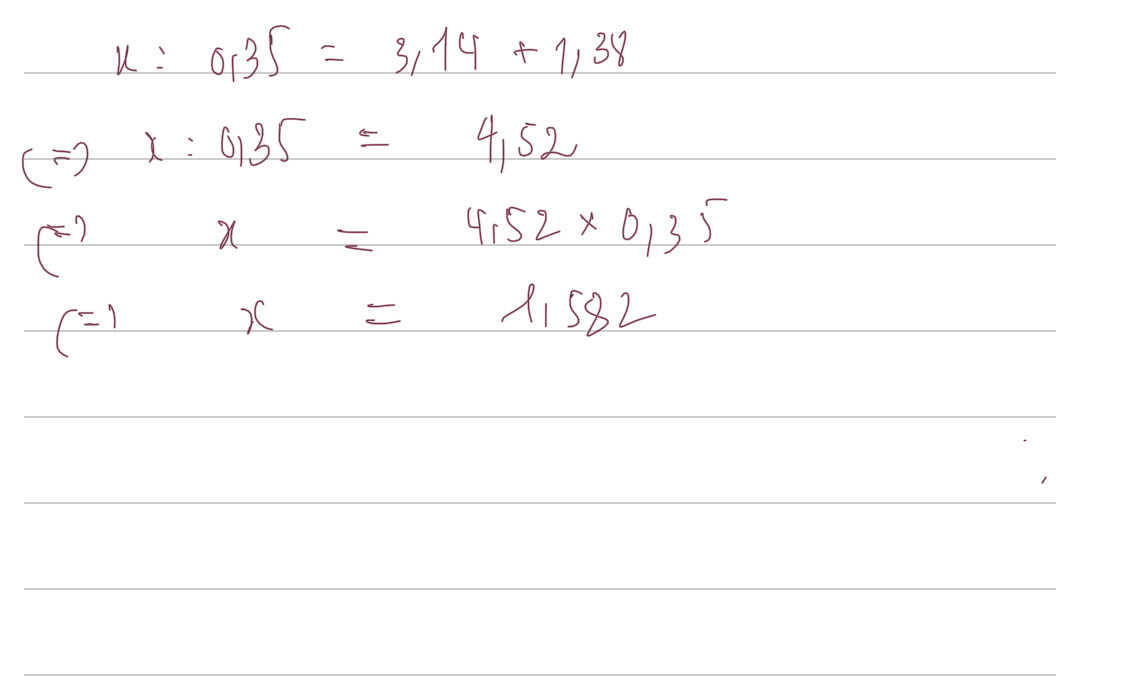 x : 0,35 = 3,14 + 1,38
(=) x : 0,35 = 4,52
(=) x = 4,52 x 0,35
(=) x = 1,582